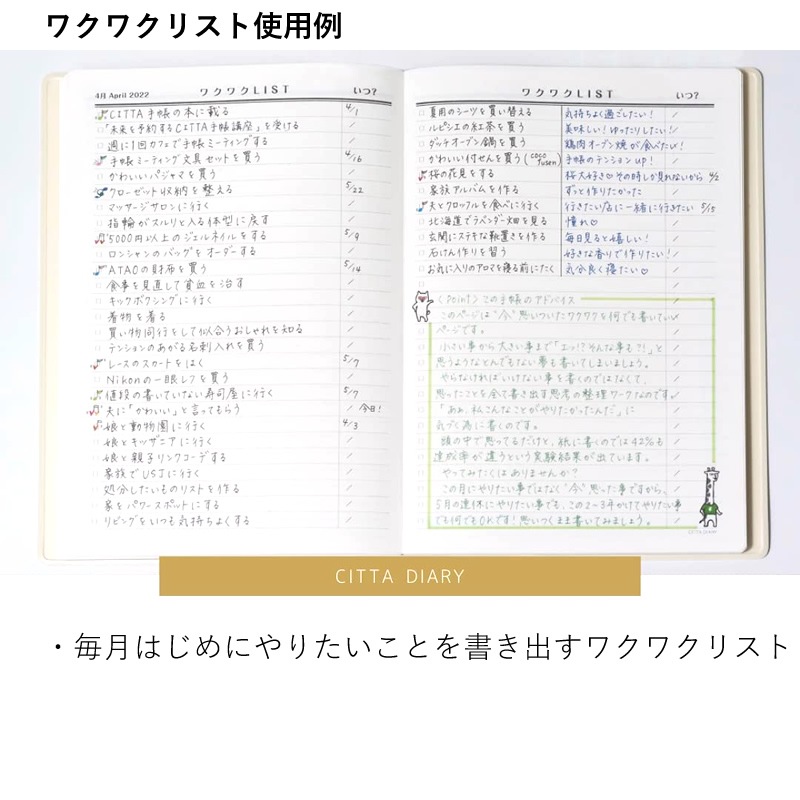 ワクワクリスト使用例
4月 April 2022 ワクワクLIST いつ?
CITTA手帳の本に載る 4/1
「未来を予約するCITTA手帳講座」を受ける /
週に1回カフェで手帳ミーティングする /
手帳ミーティング文具セットを買う 4/16
かわいいパジャマを買う /
クローゼット収納を整える 5/22
マッサージサロンに行く /
指輪がスルリと入る体型に戻す /
5000円以上のジェルネイルをする 5/9
ロンシャンのバッグをオーダーする /
ATAOの財布を買う 5/14
食事を見直して貧血を治す /
キックボクシングに行く /
着物を着る /
買い物同行をして似合うおしゃれを知る /
テンションのあがる名刺入れを買う /
レースのスカートをはく 5/7
Nikonの一眼レフを買う /
値段の書いていない寿司屋に行く 5/7
夫に「かわいい」と言ってもらう / 今日!
娘と動物園に行く 4/3
娘とキッザニアに行く /
娘と親子リンクコーデする /
家族でUSJに行く /
処分したいものリストを作る /
家をパワースポットにする /
リビングをいつも気持ちよくする /
ワクワクLIST いつ?
夏用のシーツを買い替える 気持ちよく過ごしたい! /
ルピシエの紅茶を買う 美味しい!ゆったりしたい! /
ダッチオーブン鍋を買う 鶏肉オーブン焼が食べたい! /
かわいい付せんを買う(coco fusen) 手帳のテンションup! /
桜の花見をする 桜大好き♡その時しか見れないから 4/2
家族アルバムを作る ずっと作りたかった /
夫とクロッフルを食べに行く 行きたい店に一緒に行きたい 5/15
北海道でラベンダー畑を見る 憧れ♡ /
玄関にステキな靴置きを作る 毎日見ると嬉しい! /
石けん作りを習う 好きな香りで作りたい! /
お気に入りのアロマを寝る前にたく 気分良く寝たい♡ /
〈Point〉この手帳のアドバイス
このページは“今”思いついたワクワクを何でも書いていい
ページです。
小さい事から大きい事まで「エッ!?そんな事も?!」と
思うようなとんでもない夢も書いてしまいましょう。
やらなければいけない事を書くのではなくて、
思ったことを全て書き出す思考の整理ワークなのです。
「あぁ、私こんなことがやりたかったんだ」に
気づく為に書くのです。
頭の中で思ってるだけと、紙に書くのでは42%も
達成率が違うという実験結果が出ています。
やってみたくはありませんか?
この月にやりたい事ではなく“今”思った事ですから、
5月の連休にやりたい事でも、この2〜3年かけてやりたい事
でも何でもOKです!思いつくまま書いてみましょう。
CITTA DIARY
CITTA DIARY
・毎月はじめにやりたいことを書き出すワクワクリスト